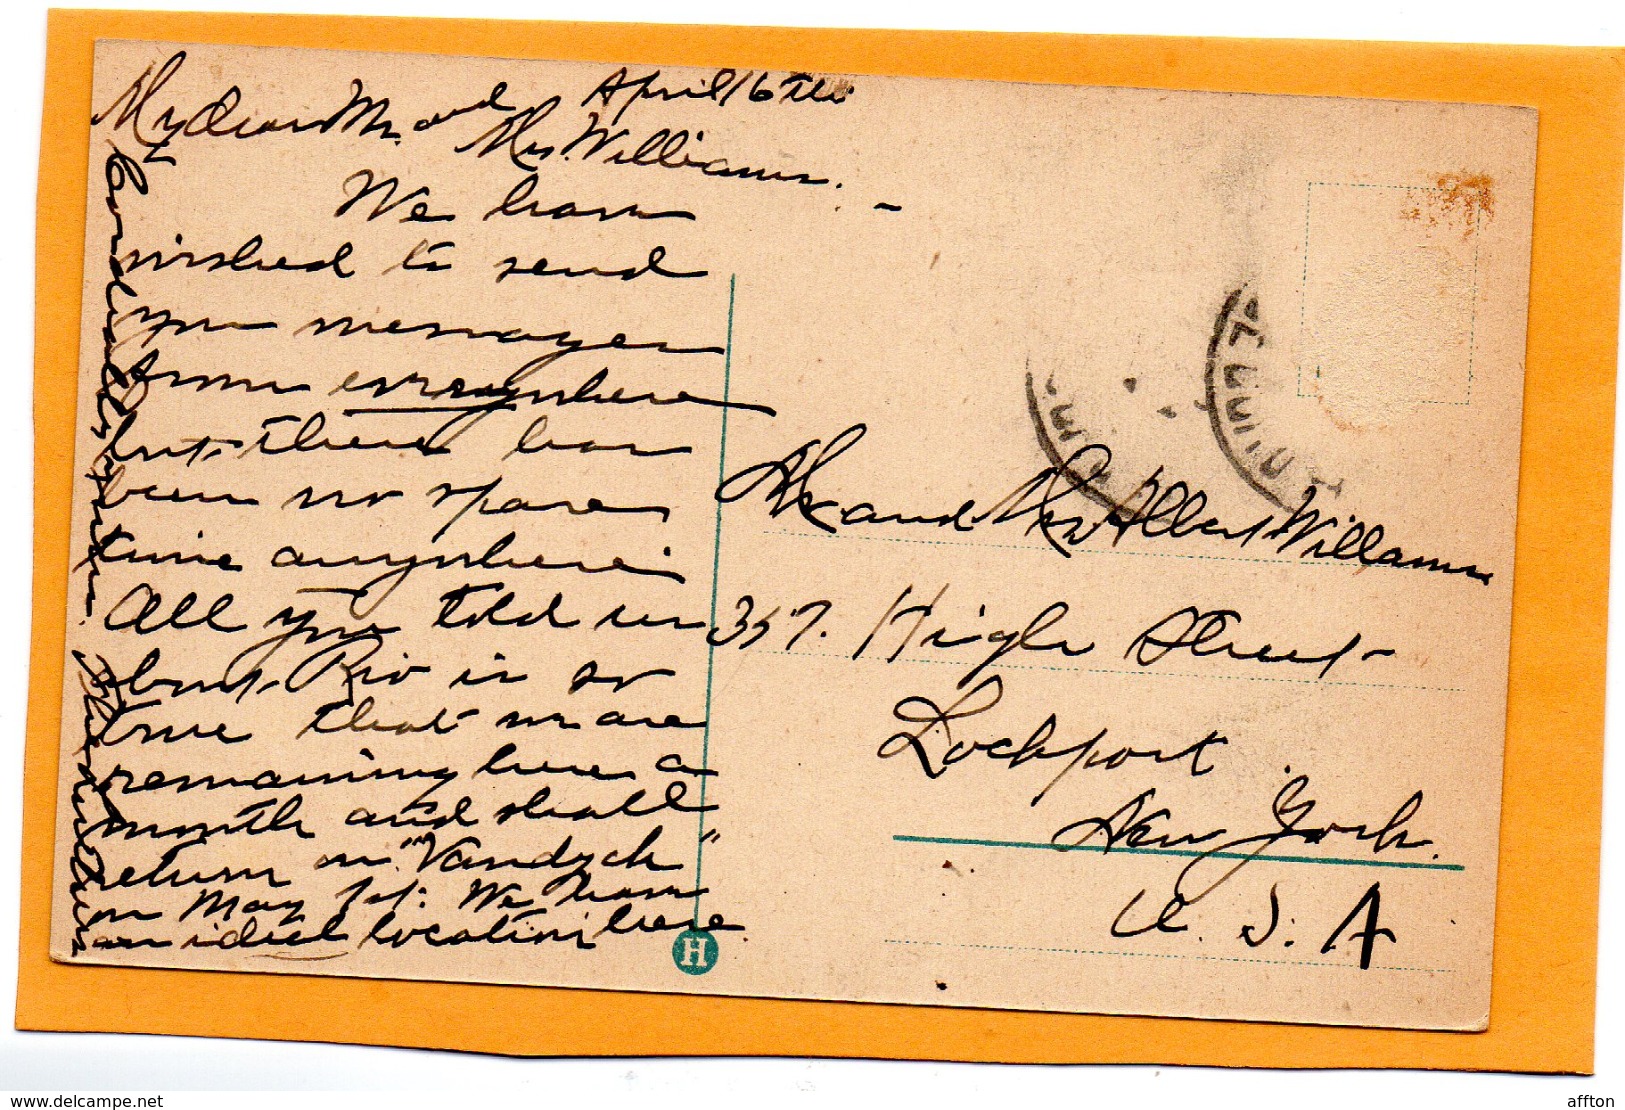 April 16th
My dear Mr. and
Mrs. Williams. -
We have
wished to send
you messages
from everywhere
but there has
been no spare
time anywhere.
All you told us
about Rio is so
true that we are
remaining here a
month and shall
return on "Vandyck"
on May 1st. We have
an ideal location here.
Cordially yours
Mr and Mrs Albert Williams
357. High Street
Lockport
New York.
U. S. A
H
www.delcampe.net
affton